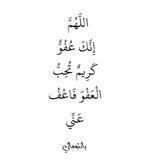 اللَّهُمَّ
إِنَّكَ عَفُوٌّ
كَرِيمٌ تُحِبُّ
الْعَفْوَ فَاعْفُ
عَنِّي